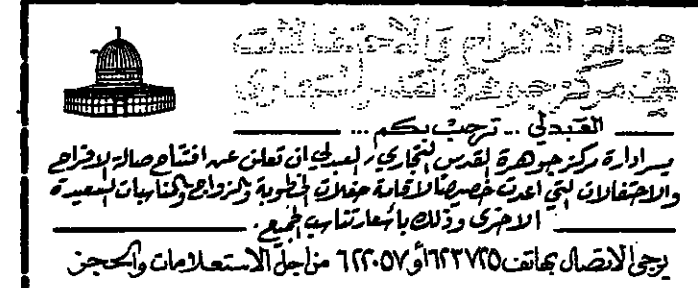 صالة الأفراح والاحتفالات
في مركز جوهرة القدس التجاري
العبدلي ... ترحب بكم ...
يسر ادارة مركز جوهرة القدس التجاري / العبدلي ان تعلن عن افتتاح صالة الافراح
والاحتفالات التي اعدت خصيصا لاقامة حفلات الخطوبة والزواج والمناسبات السعيدة
الاخرى وذلك بأسعار تناسب الجميع .
يرجى الاتصال بهاتف ٦٢٣٧٢٥ أو ٦٢٢٠٥٧ من اجل الاستعلامات والحجز